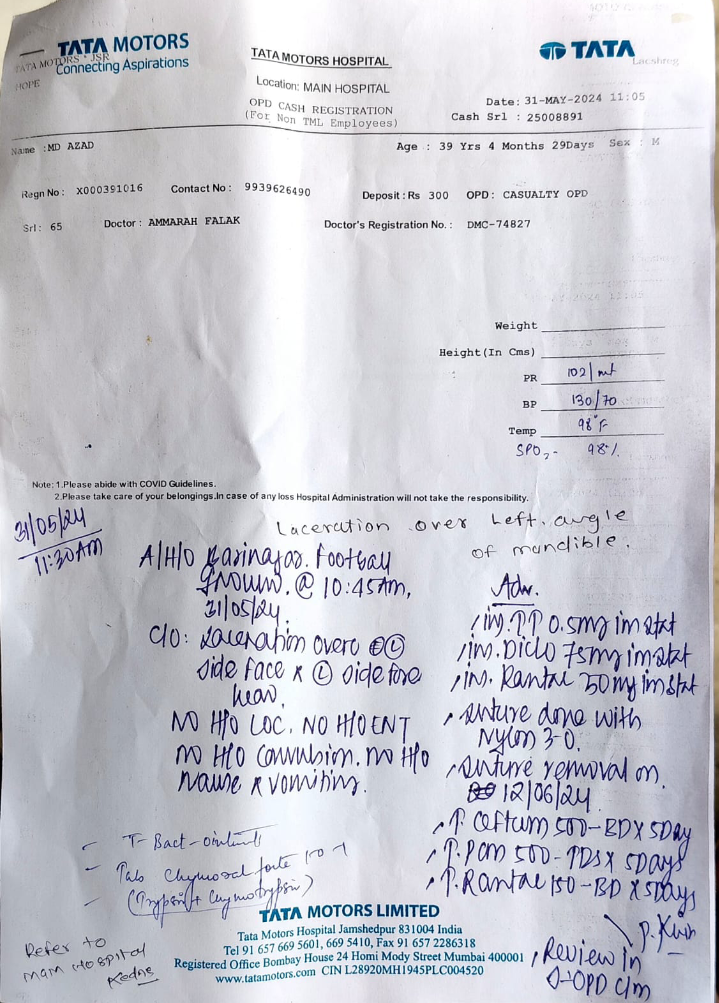 TATA MOTORS
Connecting Aspirations
TATA MOTORS * JSR
HOPE
TATA MOTORS HOSPITAL
Location: MAIN HOSPITAL
OPD CASH REGISTRATION
(For Non TML Employees)
TATA
Date: 31-MAY-2024 11:05
Cash Srl : 25008891
Name :MD AZAD
Age : 39 Yrs 4 Months 29Days Sex : M
Regn No: X000391016 Contact No: 9939626490 Deposit:Rs 300 OPD: CASUALTY OPD
Srl: 65 Doctor: AMMARAH FALAK Doctor's Registration No.: DMC-74827
Weight
Height(In Cms)
PR 102/mt
BP 130/70
Temp 98°F
SPO2- 98%
Note: 1.Please abide with COVID Guidelines.
2.Please take care of your belongings.In case of any loss Hospital Administration will not take the responsibility.
31/05/24
11:30AM
Laceration over Left angle
of mandible.
A/H/O Football
Ground. @ 10:45AM,
31/05/24.
C/O: Laceration over (L)
side face & (L) side fore
head.
NO H/O LOC, NO H/O ENT
NO H/O Convulsion. no H/O
nause & vomiting.
Adv.
inj. TT 0.5mg im stat
inj. Diclo 75mg im stat
inj. Rantac 50mg im stat
suture done with
Nylon 3-0.
suture removal on
12/06/24
T. Ceftum 500-BDX 5Day
T. Pcm 500-TDSX 5Days
T. Rantac 150-BD X 5Days
- T-Bact-ointment
- Tab Chymoral forte
- (Trypsin + Chymotrypsin)
TATA MOTORS LIMITED
Tata Motors Hospital Jamshedpur 831004 India
Tel 91 657 669 5601, 669 5410, Fax 91 657 2286318
Registered Office Bombay House 24 Homi Mody Street Mumbai 400001
www.tatamotors.com CIN L28920MH1945PLC004520
Refer to
MGM Hospital
Review in
S-OPD c/m